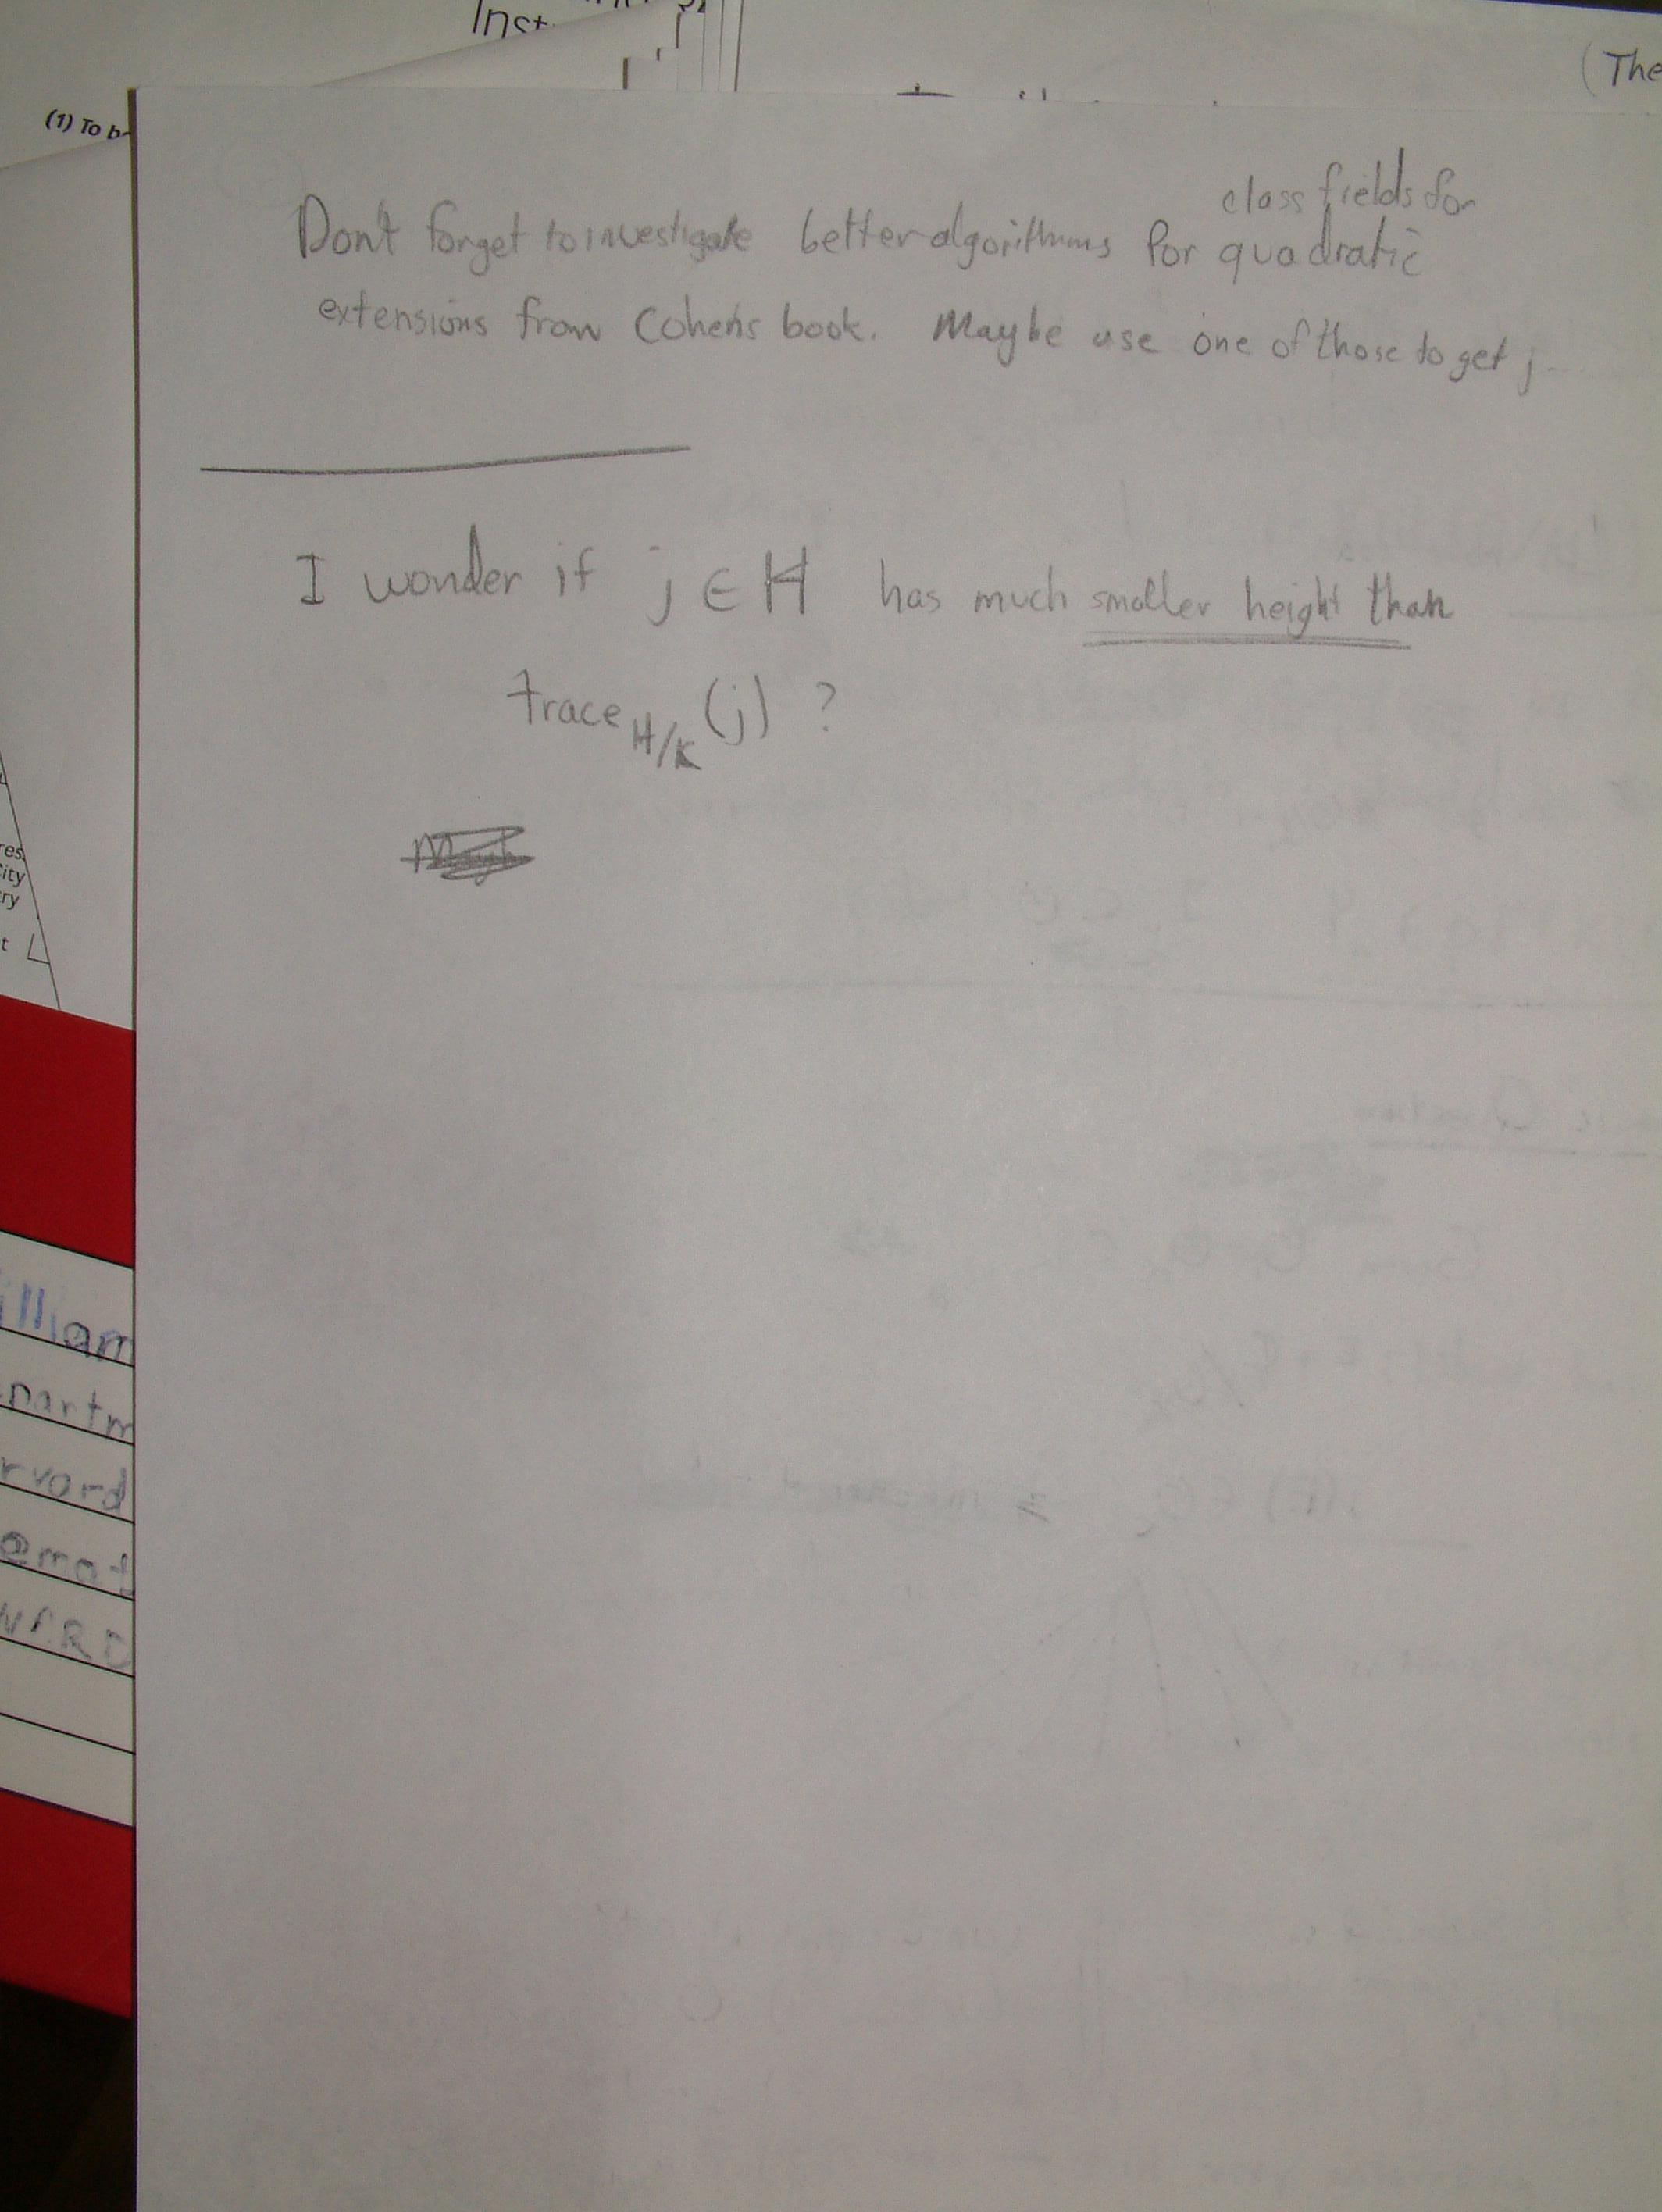 Inst
(The
(1) To b
class fields for
Don't forget to investigate better algorithms for quadratic
extensions from Cohen's book. Maybe use one of those to get j.
I wonder if j ∈ H has much smaller height than
trace_{H/K} (j) ?
res
City
ry
t
illiam
partm
rvard
@mat